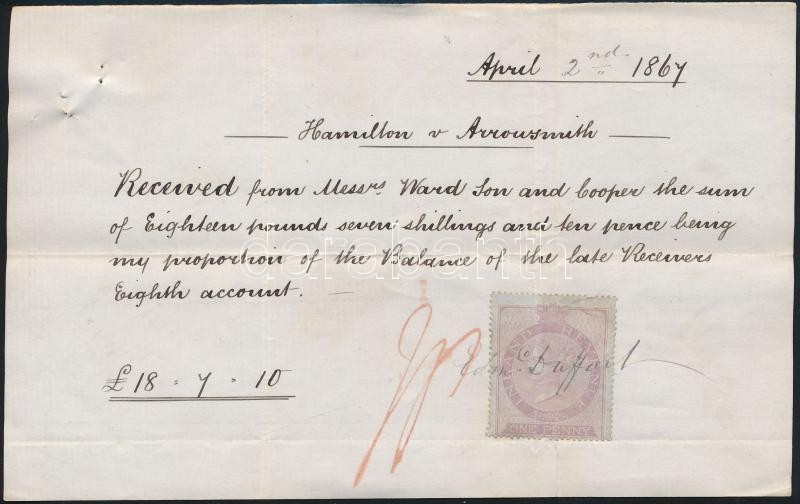 April 2nd 1867
Hamilton v Arrowsmith
Received from Messrs. Ward Son and Cooper the sum
of Eighteen pounds seven shillings and ten pence being
my proportion of the Balance of the late Receivers
Eighth account. —
darabanth
£18 - 7 - 10
INLAND REVENUE
ONE PENNY